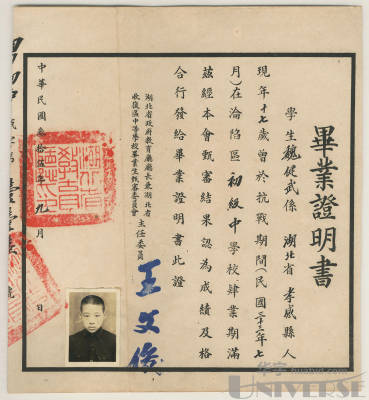 畢業證明書
學生魏健武係 湖北省 孝感縣人
現年十七歲曾於抗戰期間(民國三十三年七
月)在淪陷區 初級中學校肄業期滿
茲經本會甄審結果認為成績及格
合行發給畢業證明書此證
湖北省政府教育廳廳長兼湖北省
收復區中等學校畢業生甄審委員會 主任委員 王文俊
中華民國叁拾伍年九月 日
號
華宇
huayud.com
UNIVERSE